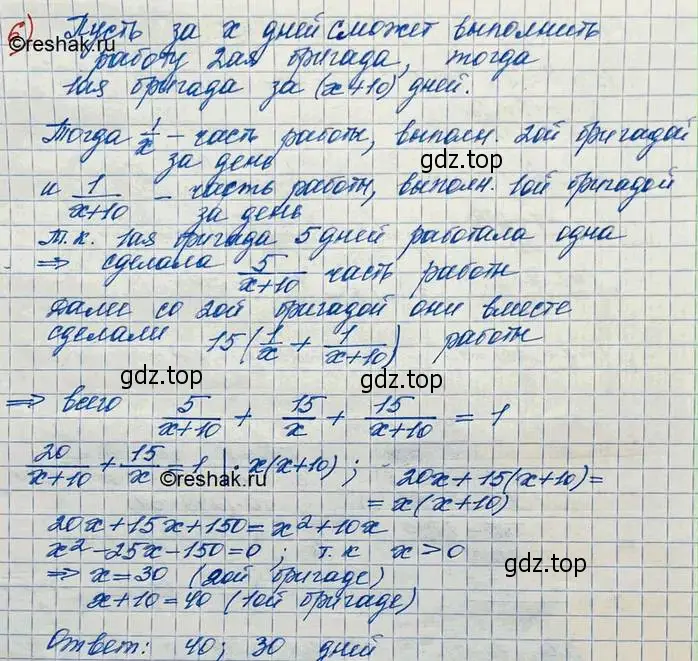 6) Пусть за x дней сможет выполнить
©reshak.ru
работу 2ая бригада, тогда
1ая бригада за (x+10) дней.
Тогда 1/x - часть работы, выполн. 2ой бригадой
за день
gdz.top
и 1/(x+10) - часть работы, выполн. 1ой бригадой
за день
т.к. 1ая бригада 5 дней работала одна
⇒ сделала 5/(x+10) часть работы
Далее со 2ой бригадой они вместе
сделали 15(1/x + 1/(x+10)) работы
gdz.top
gdz.top
⇒ всего 5/(x+10) + 15/x + 15/(x+10) = 1
20/(x+10) + 15/x = 1 | · x(x+10) ; 20x+15(x+10)=
©reshak.ru
= x(x+10)
20x+15x+150=x²+10x
x²-25x-150=0 ; т.к x>0
⇒ x=30 (2ой бригаде)
gdz.top
x+10=40 (1ой бригаде)
Ответ: 40; 30 дней